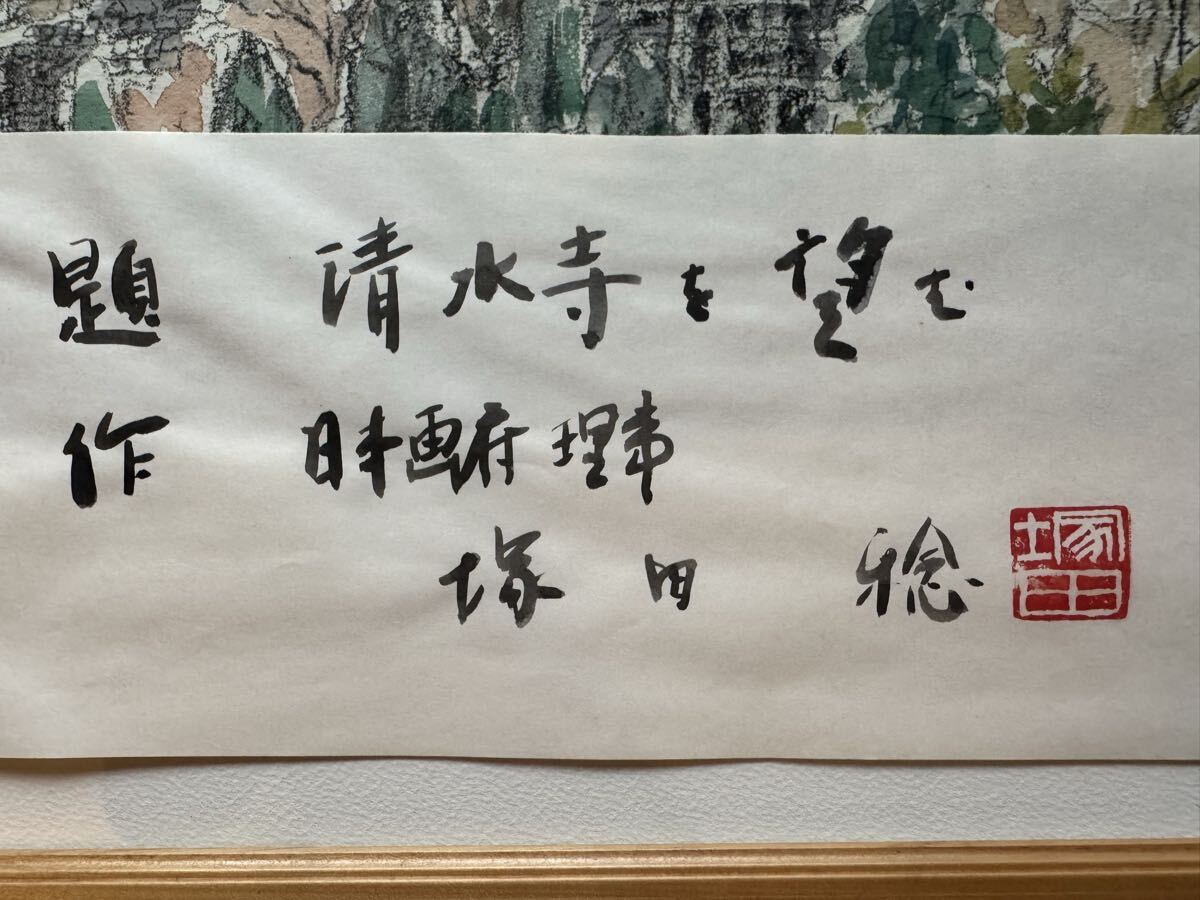 題 清水寺を望む
作 日本画府理事
塚田 稔
塚田